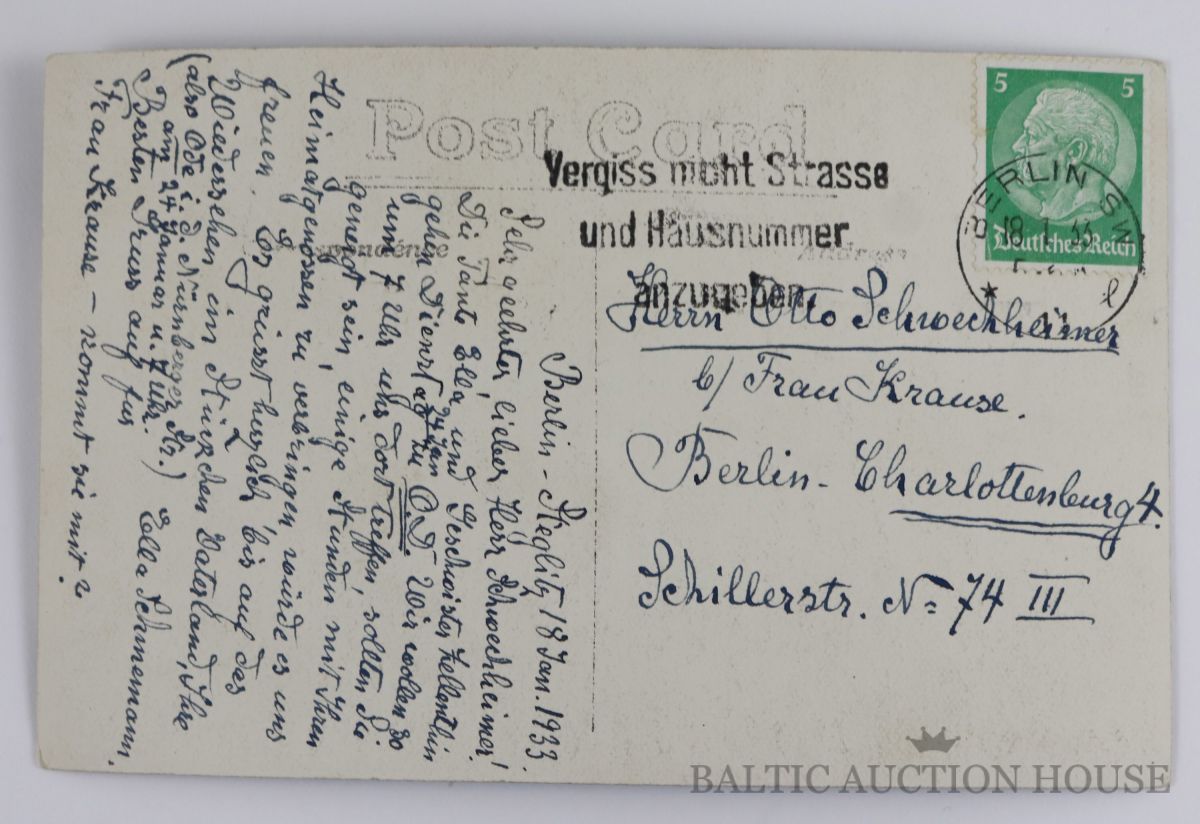 Post Card
Vergiss nicht Strasse
und Hausnummer
anzugeben
5 5
Deutsches Reich
BERLIN SW
18.1.33
Correspondence
Address
Herrn Otto Schwechheimer
b/ Frau Krause.
Berlin-Charlottenburg 4.
Schillerstr. No 74 III
Berlin-Steglitz, 18 Jan. 1933.
Sehr geehrter, lieber Herr Schwechheimer!
Die Tante Ella, und Geschwister
gehen Dienstag 24 Jan zu O.D. Wir wollen so
um 7 Uhr uns dort treffen, sollten Sie
geneigt sein, einige Stunden mit Ihren
Heimatgenossen zu verbringen, würde es uns
freuen. Es grüsst bis auf das
Wiedersehen ein Stückchen Vaterland, Ihre
(also i. d. Nürnberger Str.) Ella Schnemann.
am 24 Januar u. 7 Uhr.)
Besten Gruss auf für
Frau Krause – kommt sie mit?
BALTIC AUCTION HOUSE